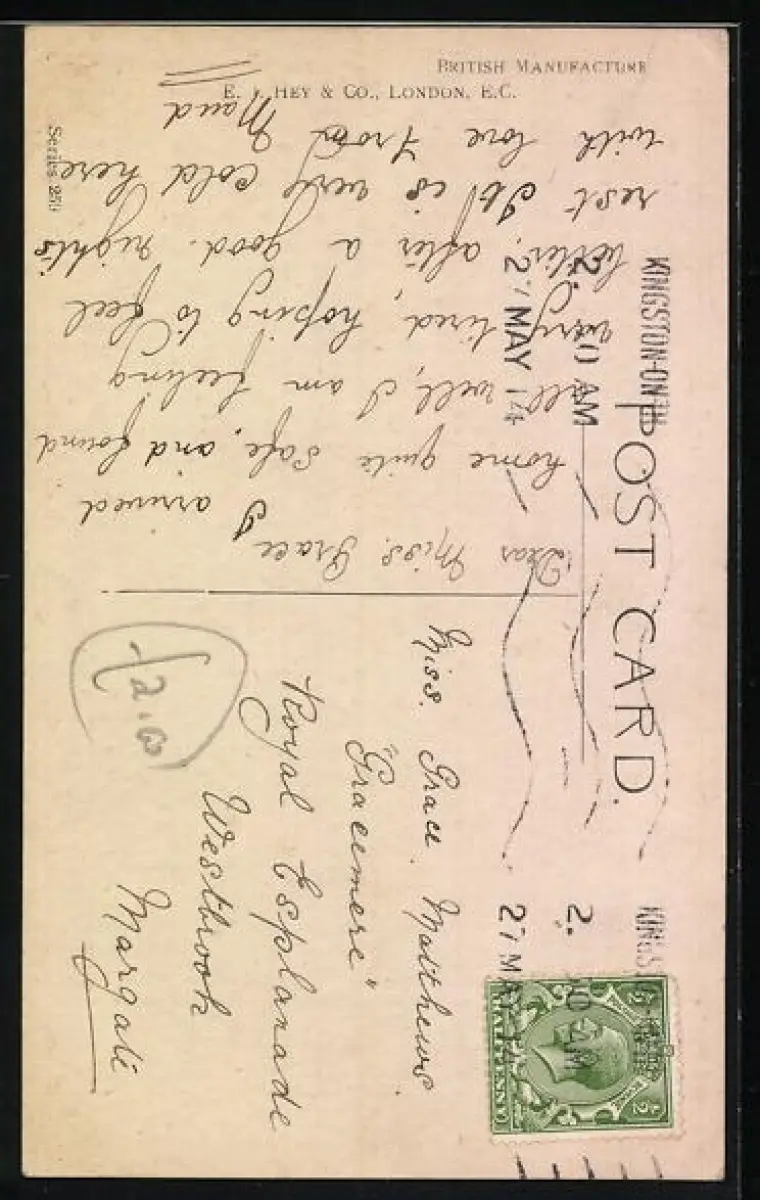 POST CARD.
BRITISH MANUFACTURE
E. J. HEY & CO., LONDON, E.C.
Series
KINGSTON-ON-TH
AM
27 MAY 14
KINGS
AM
27 MAY 14
HALFPENNY
Dear Miss. Grace
I arrived
home quite safe, and found
all well, I am feeling
very tired, hoping to feel
better, after a good. night's
rest It is very cold here
with love from
Maud
Miss. Grace. Matthews.
"Gracemere"
Royal Esplanade
Westbrook
Margate
£2.00